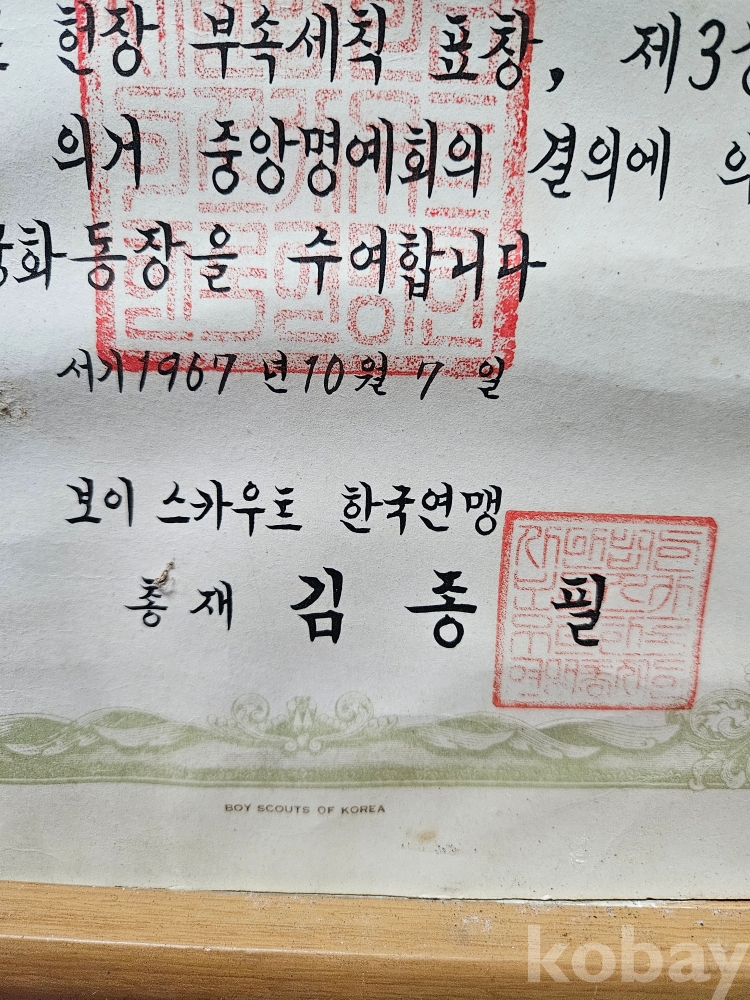 헌장 부속세칙 표창, 제3
의거 중앙명예회의 결의에
화동장을 수여합니다
서기1967년10월 7일
보이 스카우트 한국연맹
총재 김종필
BOY SCOUTS OF KOREA
kobay